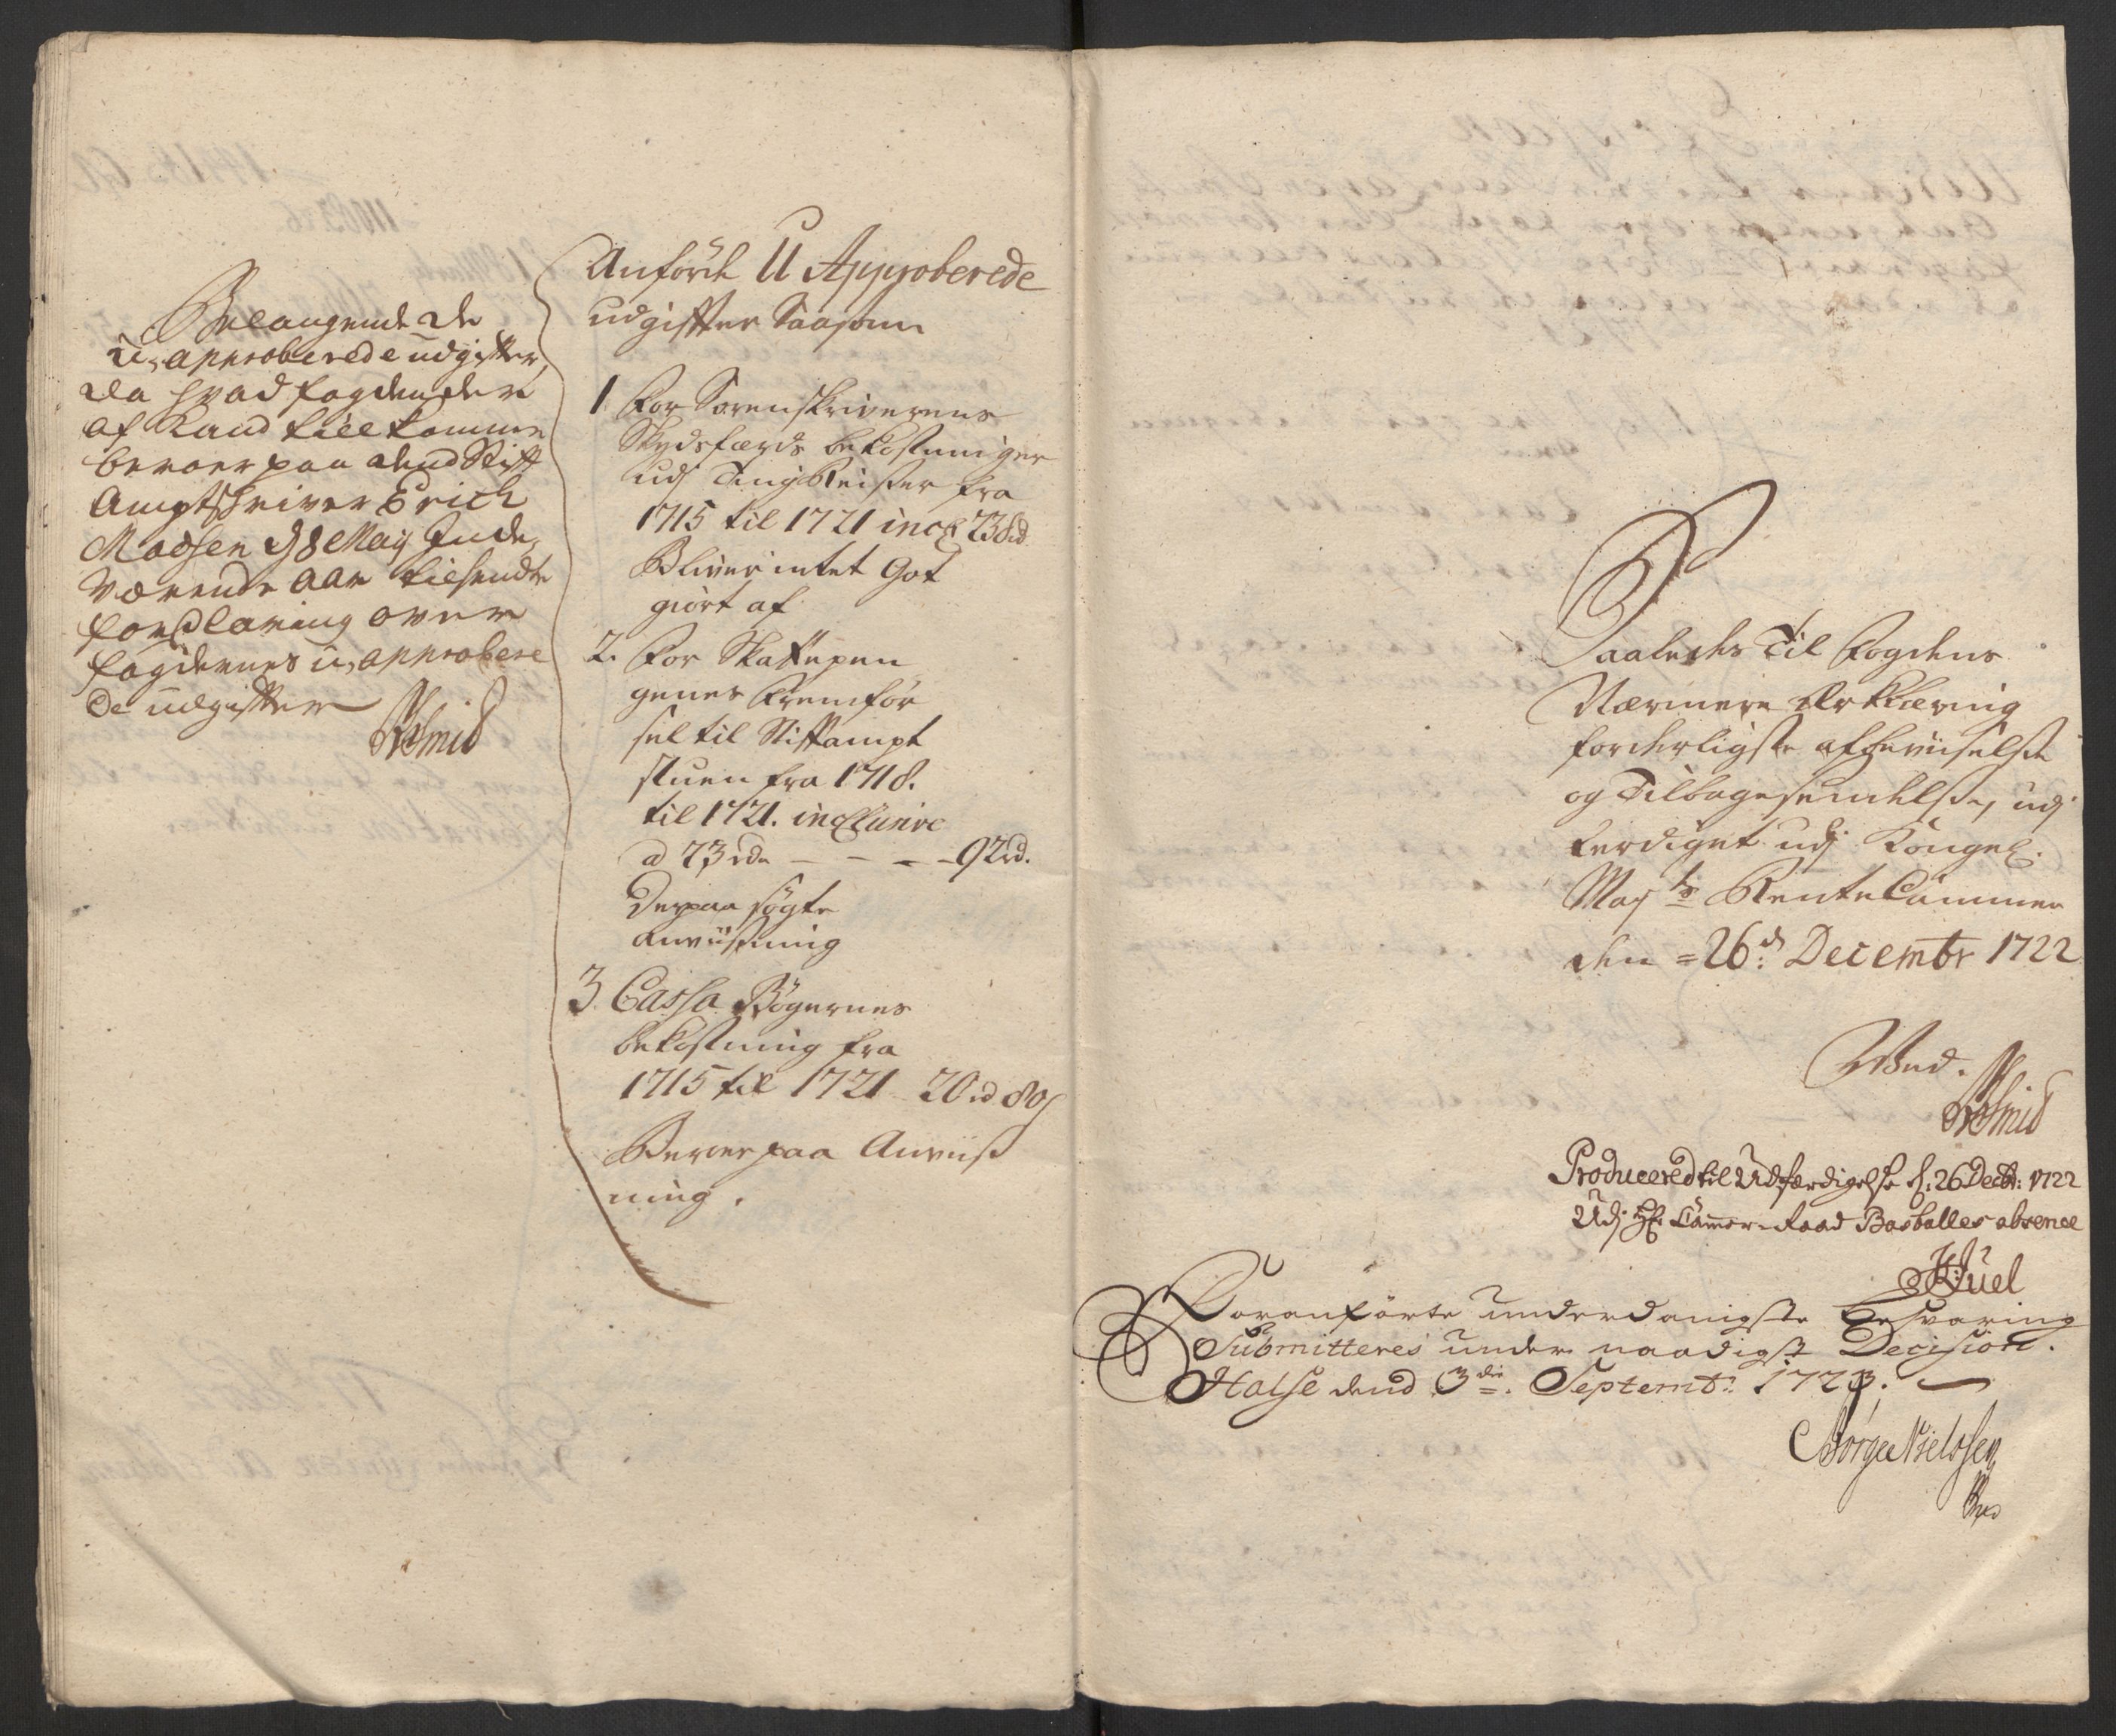 Belangende de
u,approberede udgifter,
da hvad fogden der
af Kand tillkomme
beroer paa dend Stift
Amptschriver Erich
Madsen d 8 Maij Inde,
værende Aar tilsendte
forClaring over
fogdernes u,approbere
de udgifter
Anførte U Approberede
udgifter Saasom
1 For Sorenskriverens
Skydsfærds bekostninger
udj Ting Reiser fra
1715 til 1721 incl 238 rd
Bliver intet Got
giort af
2. For Skattepen
genes Fremfør
sel til Stiftampt
stuen fra 1718.
til 1721. inclusive
a 23 rdr - - - - 92 rd.
Derpaa søgte
Anviisning
3. Cassa Bøgernes
bekostning fra
1715 til 1721 20 rd 80 s
Beroer paa Anviis
ning.
Saaledes Til Fogdens
Nærmere Erklæring
forderligste afbeviiselse
og Tilbagesendelse, udj
ferdiget udj Kongel.
Maj ts RenteCammer
den = 26 d: Decembr 1722
Smid
Produceered til Udfærdigelse d: 26 Decbr: 1722
Udj Hr Cammer-Raad Basballes absence
Juel
Foranførte underdanigste Besvaring
Submitteres under naadigst Decision.
Halse dend 3 die. Septembr: 1723.
Børge Nielssen